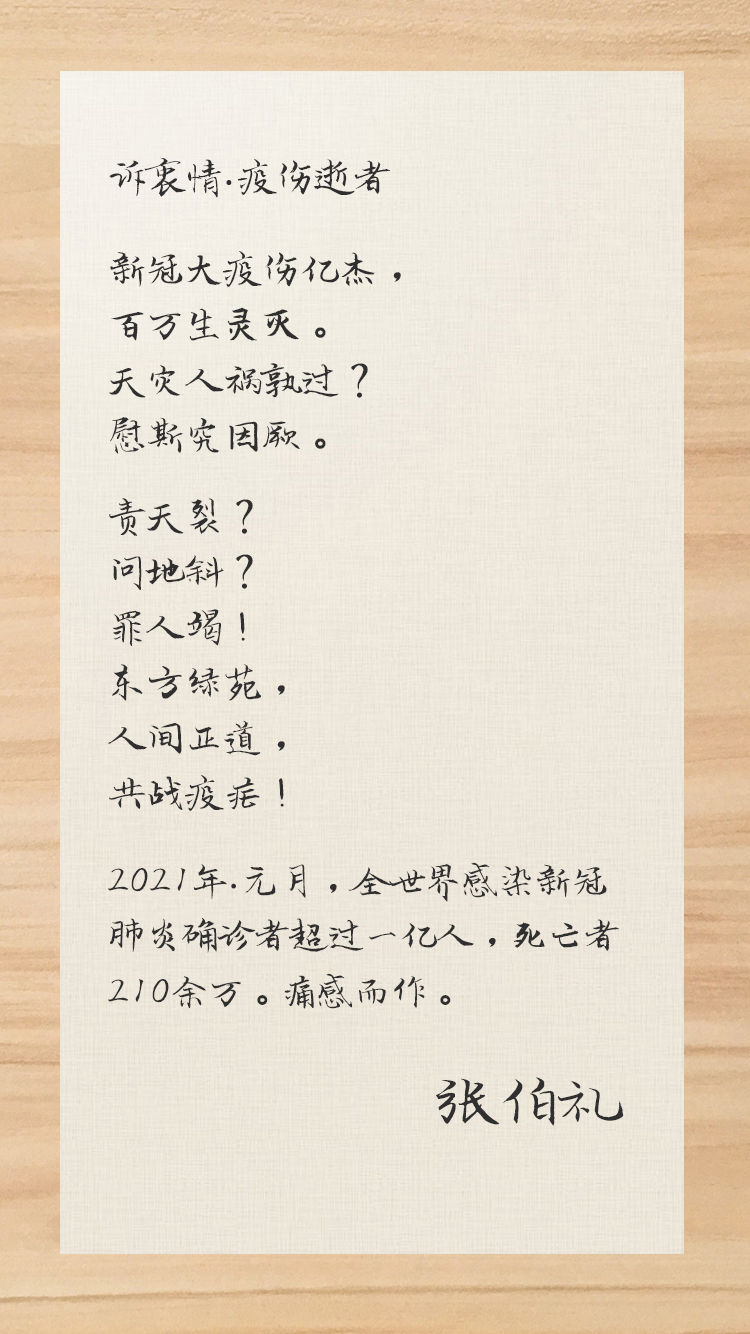 诉衷情·疫伤逝者
新冠大疫伤亿杰，
百万生灵灭。
天灾人祸孰过？
慰斯究因厥。
责天裂？
问地斜？
罪人竭！
东方绿苑，
人间正道，
共战疫疟！
2021年·元月，全世界感染新冠
肺炎确诊者超过一亿人，死亡者
210余万。痛感而作。
张伯礼